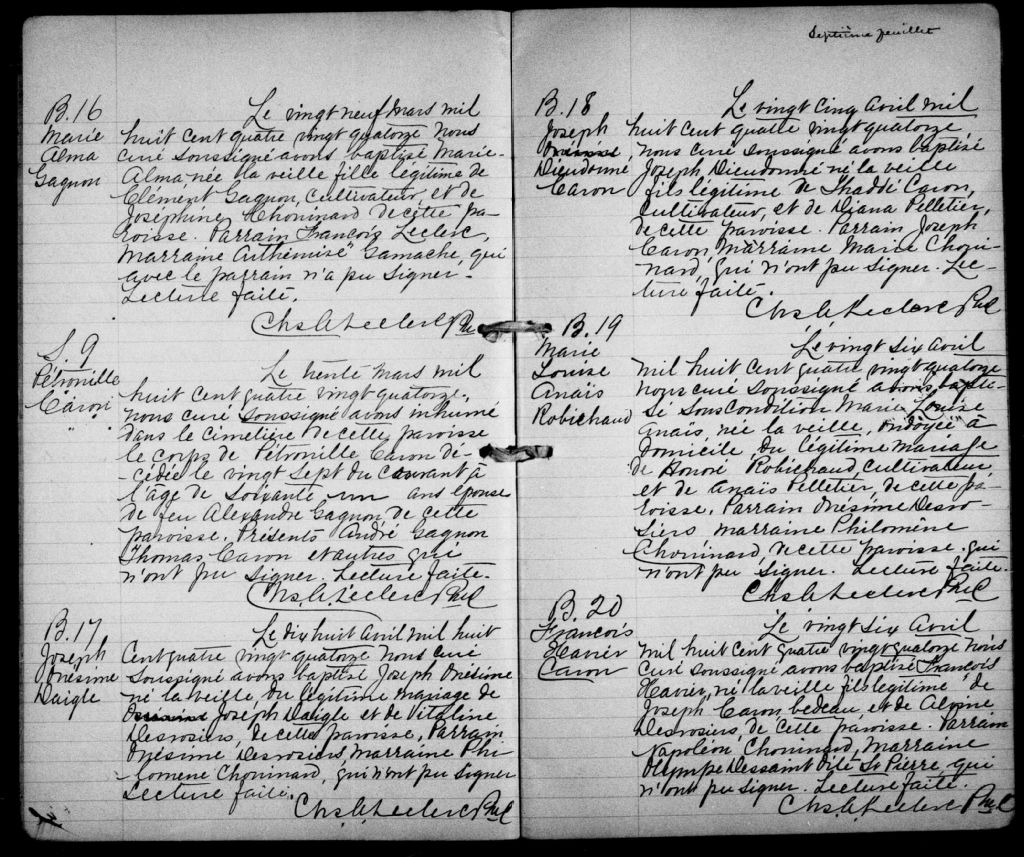 B.16
Marie
Alma
Gagnon
Le vingt neuf Mars mil
huit cent quatre vingt quatorze nous
curé soussigné avons baptisé Marie-
Alma née la veille fille légitime de
Clément Gagnon, Cultivateur, et de
Joséphine Chouinard de cette pa-
roisse. Parrain François Leclerc,
Marraine Arthémise Gamache, qui
avec le parrain n'a pu signer.
Lecture faite.
Chs. A. Leclerc Ptre
S. 9
Pétronille
Caron
Le trente Mars mil
huit cent quatre vingt quatorze,
nous curé soussigné avons inhumé
dans le cimetière de cette paroisse
le corps de Pétronille Caron dé-
cédée le vingt sept du courant à
l'âge de soixante un ans épouse
de feu Alexandre Gagnon de cette
paroisse. Présents André Gagnon
Thomas Caron et autres qui
n'ont pu signer. Lecture faite.
Chs. A. Leclerc Ptre
B. 17
Joseph
Onésime
Daigle
Le dix huit Avril mil huit
cent quatre vingt quatorze nous curé
soussigné avons baptisé Joseph Onésime
né la veille, du légitime mariage de
Joseph Daigle et de Vitaline
Desrosiers, de cette paroisse, Parrain
Onésime Desrosiers, Marraine Phi-
lomène Chouinard, qui n'ont pu signer
Lecture faite.
Chs. A. Leclerc Ptre
Septième feuillet
B. 18
Joseph
Dieudonné
Caron
Le vingt cinq Avril mil
huit cent quatre vingt quatorze,
nous curé soussigné avons baptisé
Joseph Dieudonné né la veille
fils légitime de Thaddé Caron,
Cultivateur, et de Diana Pelletier,
de cette paroisse. Parrain Joseph
Caron, Marraine Marie Choui-
nard, qui n'ont pu signer. Lec-
ture faite.
Chs. A. Leclerc Ptre
B. 19
Marie
Louise
Anaïs
Robichaud
Le vingt six Avril
mil huit cent quatre vingt quatorze
nous curé soussigné avons bapti-
sé sous condition Marie Louise
Anaïs, née la veille, ondoyée à
domicile, du légitime mariage
de Honoré Robichaud, cultivateur
et de Anaïs Pelletier, de cette pa-
roisse, Parrain Onésime Desro-
siers Marraine Philomène
Chouinard, de cette paroisse qui
n'ont pu signer. Lecture faite.
Chs. A. Leclerc Ptre
B. 20
François
Xavier
Caron
Le vingt six Avril
mil huit cent quatre vingt quatorze nous
curé soussigné avons baptisé François
Xavier, né la veille fils légitime de
Joseph Caron bedeau et de
Desrosiers, de cette paroisse. Parrain
Napoléon Chouinard, Marraine
Olympe Dessaint dite St Pierre, qui
n'ont pu signer. Lecture faite.
Chs. A. Leclerc Ptre